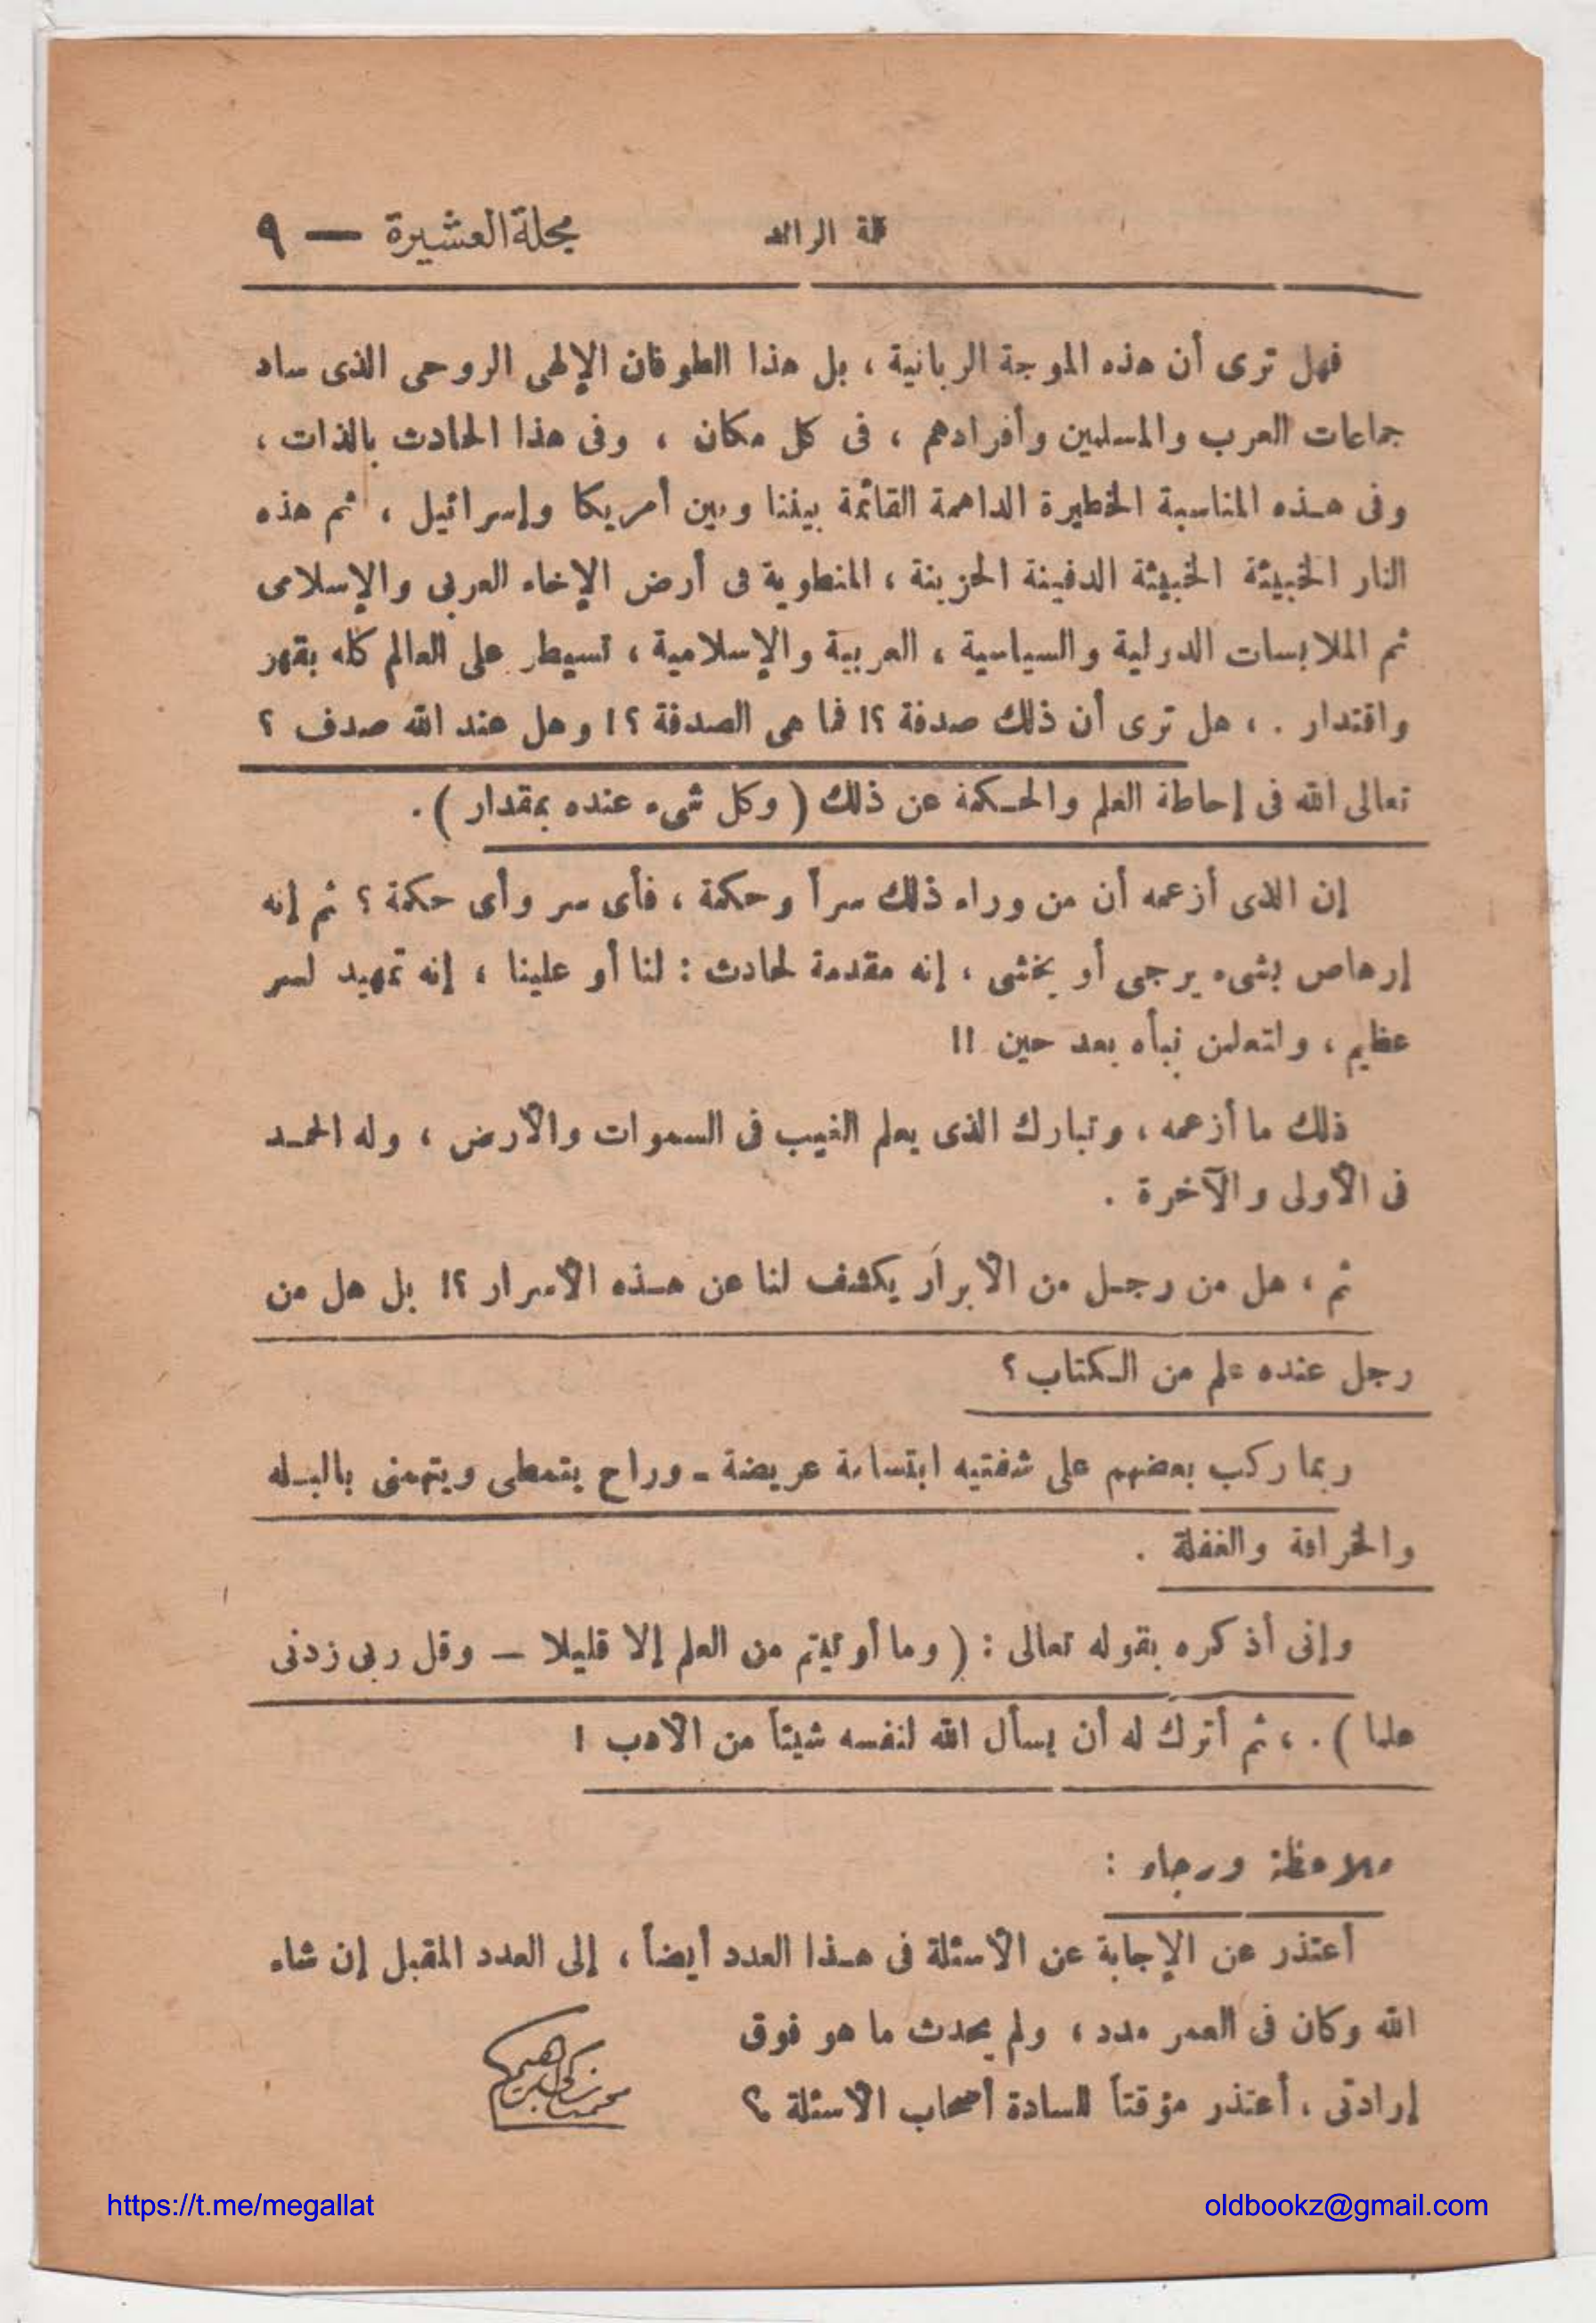 مجلة العشيرة — ٩
فهل ترى أن هذه الموجة الربانية ، بل هذا الطوفان الإلهى الروحى الذى ساد
جماعات العرب والمسلمين وأفرادهم ، فى كل مكان ، وفى هذا الحادث بالذات ،
وفى هـذه المناسبة الخطيرة الداهمة القائمة بيننا وبين أمريكا وإسرائيل ، ثم هذه
النار الخبيئة الخبيثة الدفينة الحزينة ، المنطوية فى أرض الإخاء العربى والإسلامى
ثم الملابسات الدولية والسياسية ، العربية والإسلامية ، تسيطر على العالم كله بقهر
واقتدار . ، هل ترى أن ذلك صدفة ؟! فما هى الصدفة ؟! وهل عند الله صدف ؟
تعالى الله فى إحاطة العلم والحـكمة عن ذلك ( وكل شىء عنده بمقدار ) .
إن الذى أزعمه أن من وراء ذلك سراً وحكمة ، فأى سر وأى حكمة ؟ ثم إنه
إرهاص بشىء يرجى أو يخشى ، إنه مقدمة لحادث : لنا أو علينا ، إنه تمهيد لسر
عظيم ، ولتعلمن نبأه بعد حين !!
ذلك ما أزعمه ، وتبارك الذى يعلم الغيب فى السموات والأرض ، وله الحمـد
فى الأولى والآخرة .
ثم ، هل من رجـل من الأبرار يكشف لنا عن هـذه الأسرار ؟! بل هل من
رجل عنده علم من الـكتاب ؟
ربما ركب بعضهم على شفتيه ابتسامة عريضة ـ وراح يتمطى ويتهمنى بالبـله
والخرافة والغفلة .
وإنى أذكره بقوله تعالى : ( وما أوتيتم من العلم إلا قليلا — وقل ربى زدنى
علما ) . ، ثم أترك له أن يسأل الله لنفسه شيئاً من الأدب !
ملاحظة ورجاء :
أعتذر عن الإجابة عن الأسئلة فى هـذا العدد أيضاً ، إلى العدد المقبل إن شاء
الله وكان فى العمر مدد ، ولم يحدث ما هو فوق
إرادتى ، أعتذر مؤقتاً للسادة أصحاب الأسئلة ؟
https://t.me/megallat
oldbookz@gmail.com